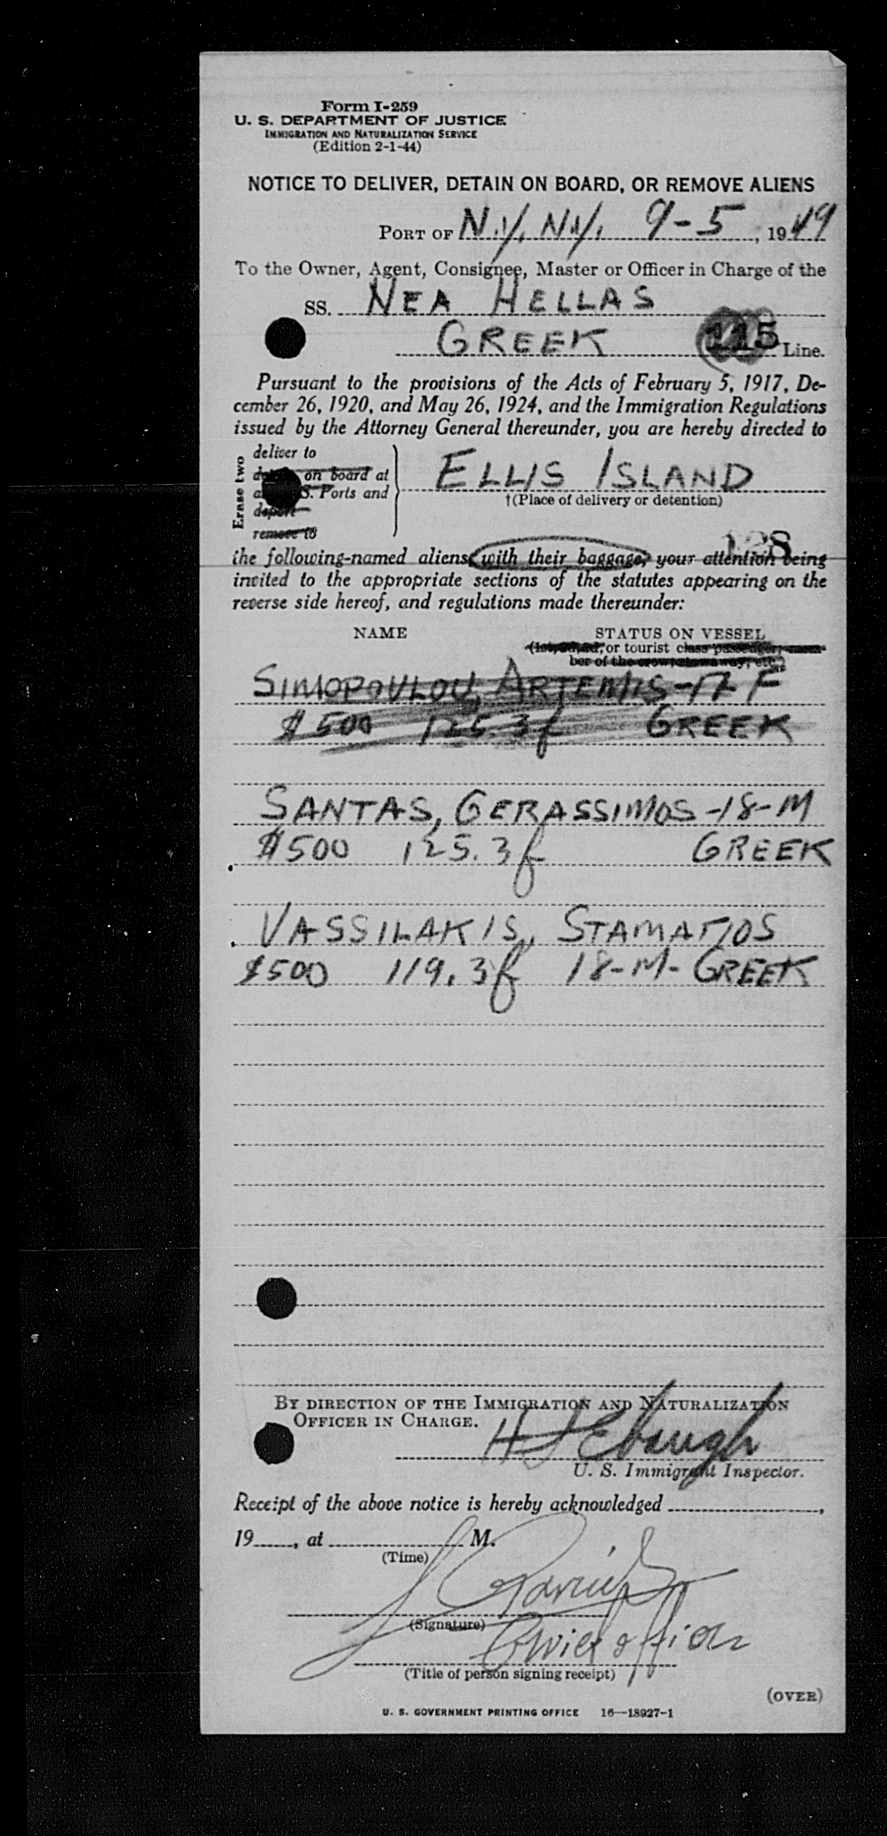 Form I-259
U. S. DEPARTMENT OF JUSTICE
IMMIGRATION AND NATURALIZATION SERVICE
(Edition 2-1-44)
NOTICE TO DELIVER, DETAIN ON BOARD, OR REMOVE ALIENS
PORT OF N.Y., N.Y. 9-5, 1949
To the Owner, Agent, Consignee, Master or Officer in Charge of the
SS. NEA HELLAS
GREEK 115 Line.
Pursuant to the provisions of the Acts of February 5, 1917, De-
cember 26, 1920, and May 26, 1924, and the Immigration Regulations
issued by the Attorney General thereunder, you are hereby directed to
Erase two
deliver to
on board at
S. Ports and
deport
remove to
ELLIS ISLAND
†(Place of delivery or detention)
128
the following-named aliens, with their baggage, your attention being
invited to the appropriate sections of the statutes appearing on the
reverse side hereof, and regulations made thereunder:
NAME STATUS ON VESSEL
or tourist class passenger, mem-
ber of the crew, stowaway, etc.)
SIMOPOULOU, ARTEMIS-17 F
$500 125.3f GREEK
SANTAS, GERASSIMOS-18-M
$500 125.3f GREEK
VASSILAKIS, STAMATIOS
$500 119.3f 18-M-GREEK
BY DIRECTION OF THE IMMIGRATION AND NATURALIZATION
OFFICER IN CHARGE.
H J Ebaugh
U. S. Immigrant Inspector.
Receipt of the above notice is hereby acknowledged ,
19 , at M.
(Time)
(Signature)
(Title of person signing receipt)
(OVER)
U. S. GOVERNMENT PRINTING OFFICE 16—18927-1